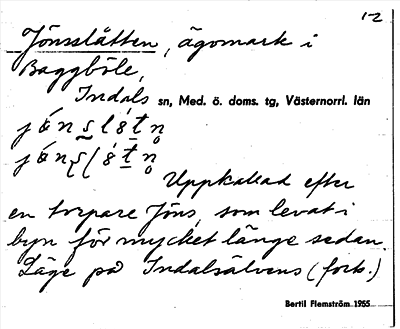 1-2
Jönsslåtten, ägomark i
Baggböle,
Indals sn, Med. ö. doms. tg, Västernorrl. län
Uppkallad efter
en torpare Jöns, som levat i
byn för mycket länge sedan.
Läge på Indalsälvens (forts.)
Bertil Flemström 1955